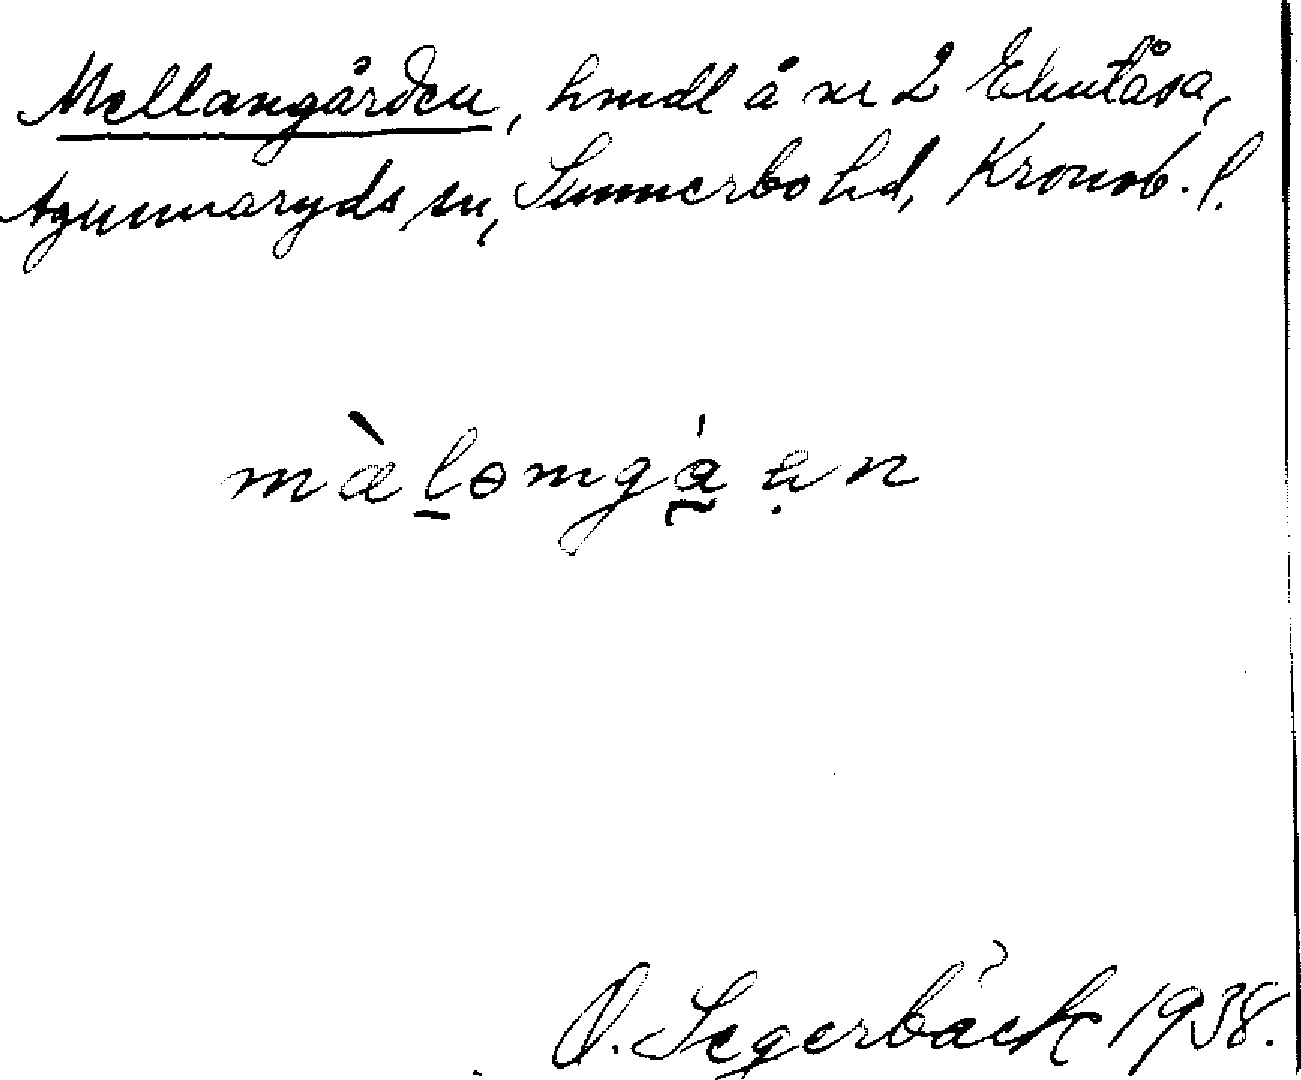 Mellangården, hmdl å nr 2 Ekutåsa,
Agunnaryds sn, Sunnerbo hd, Kronob. l.
O. Segerbäck 1938.